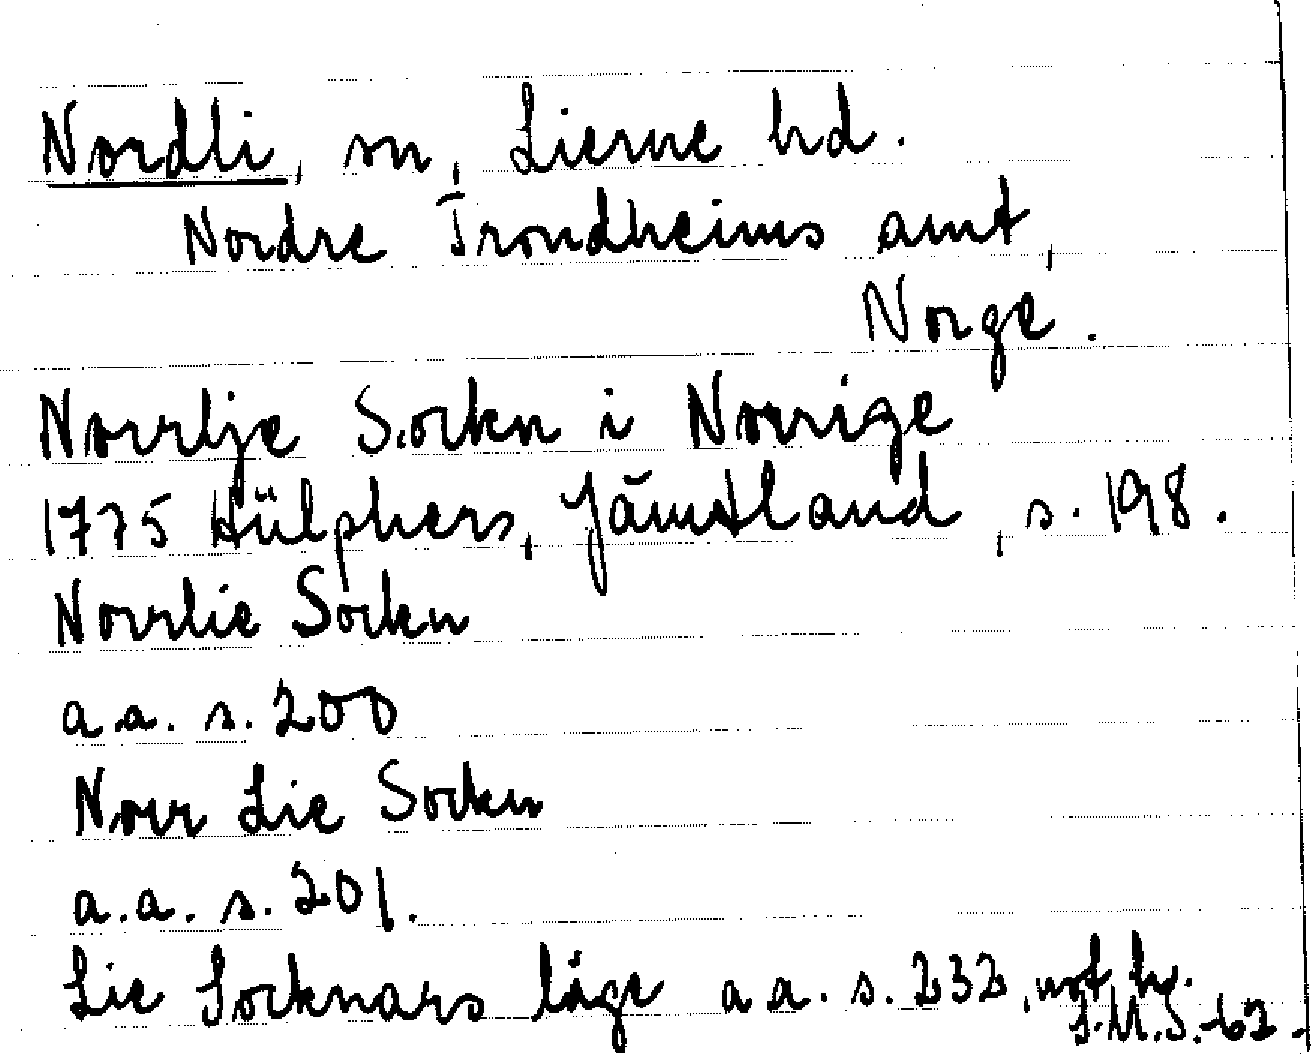 Nordli, sn, Lierne hd.
Nordre Trondheims amt,
Norge.
Norrlje Sockn i Norrige
1775 Hülphers, Jämtland, s. 198.
Norrlie Sockn
a.a. s. 200
Norr Lie Sockn
a.a. s. 201.
Lie Socknars läge a a. s. 232, not
S.M.S. -62.